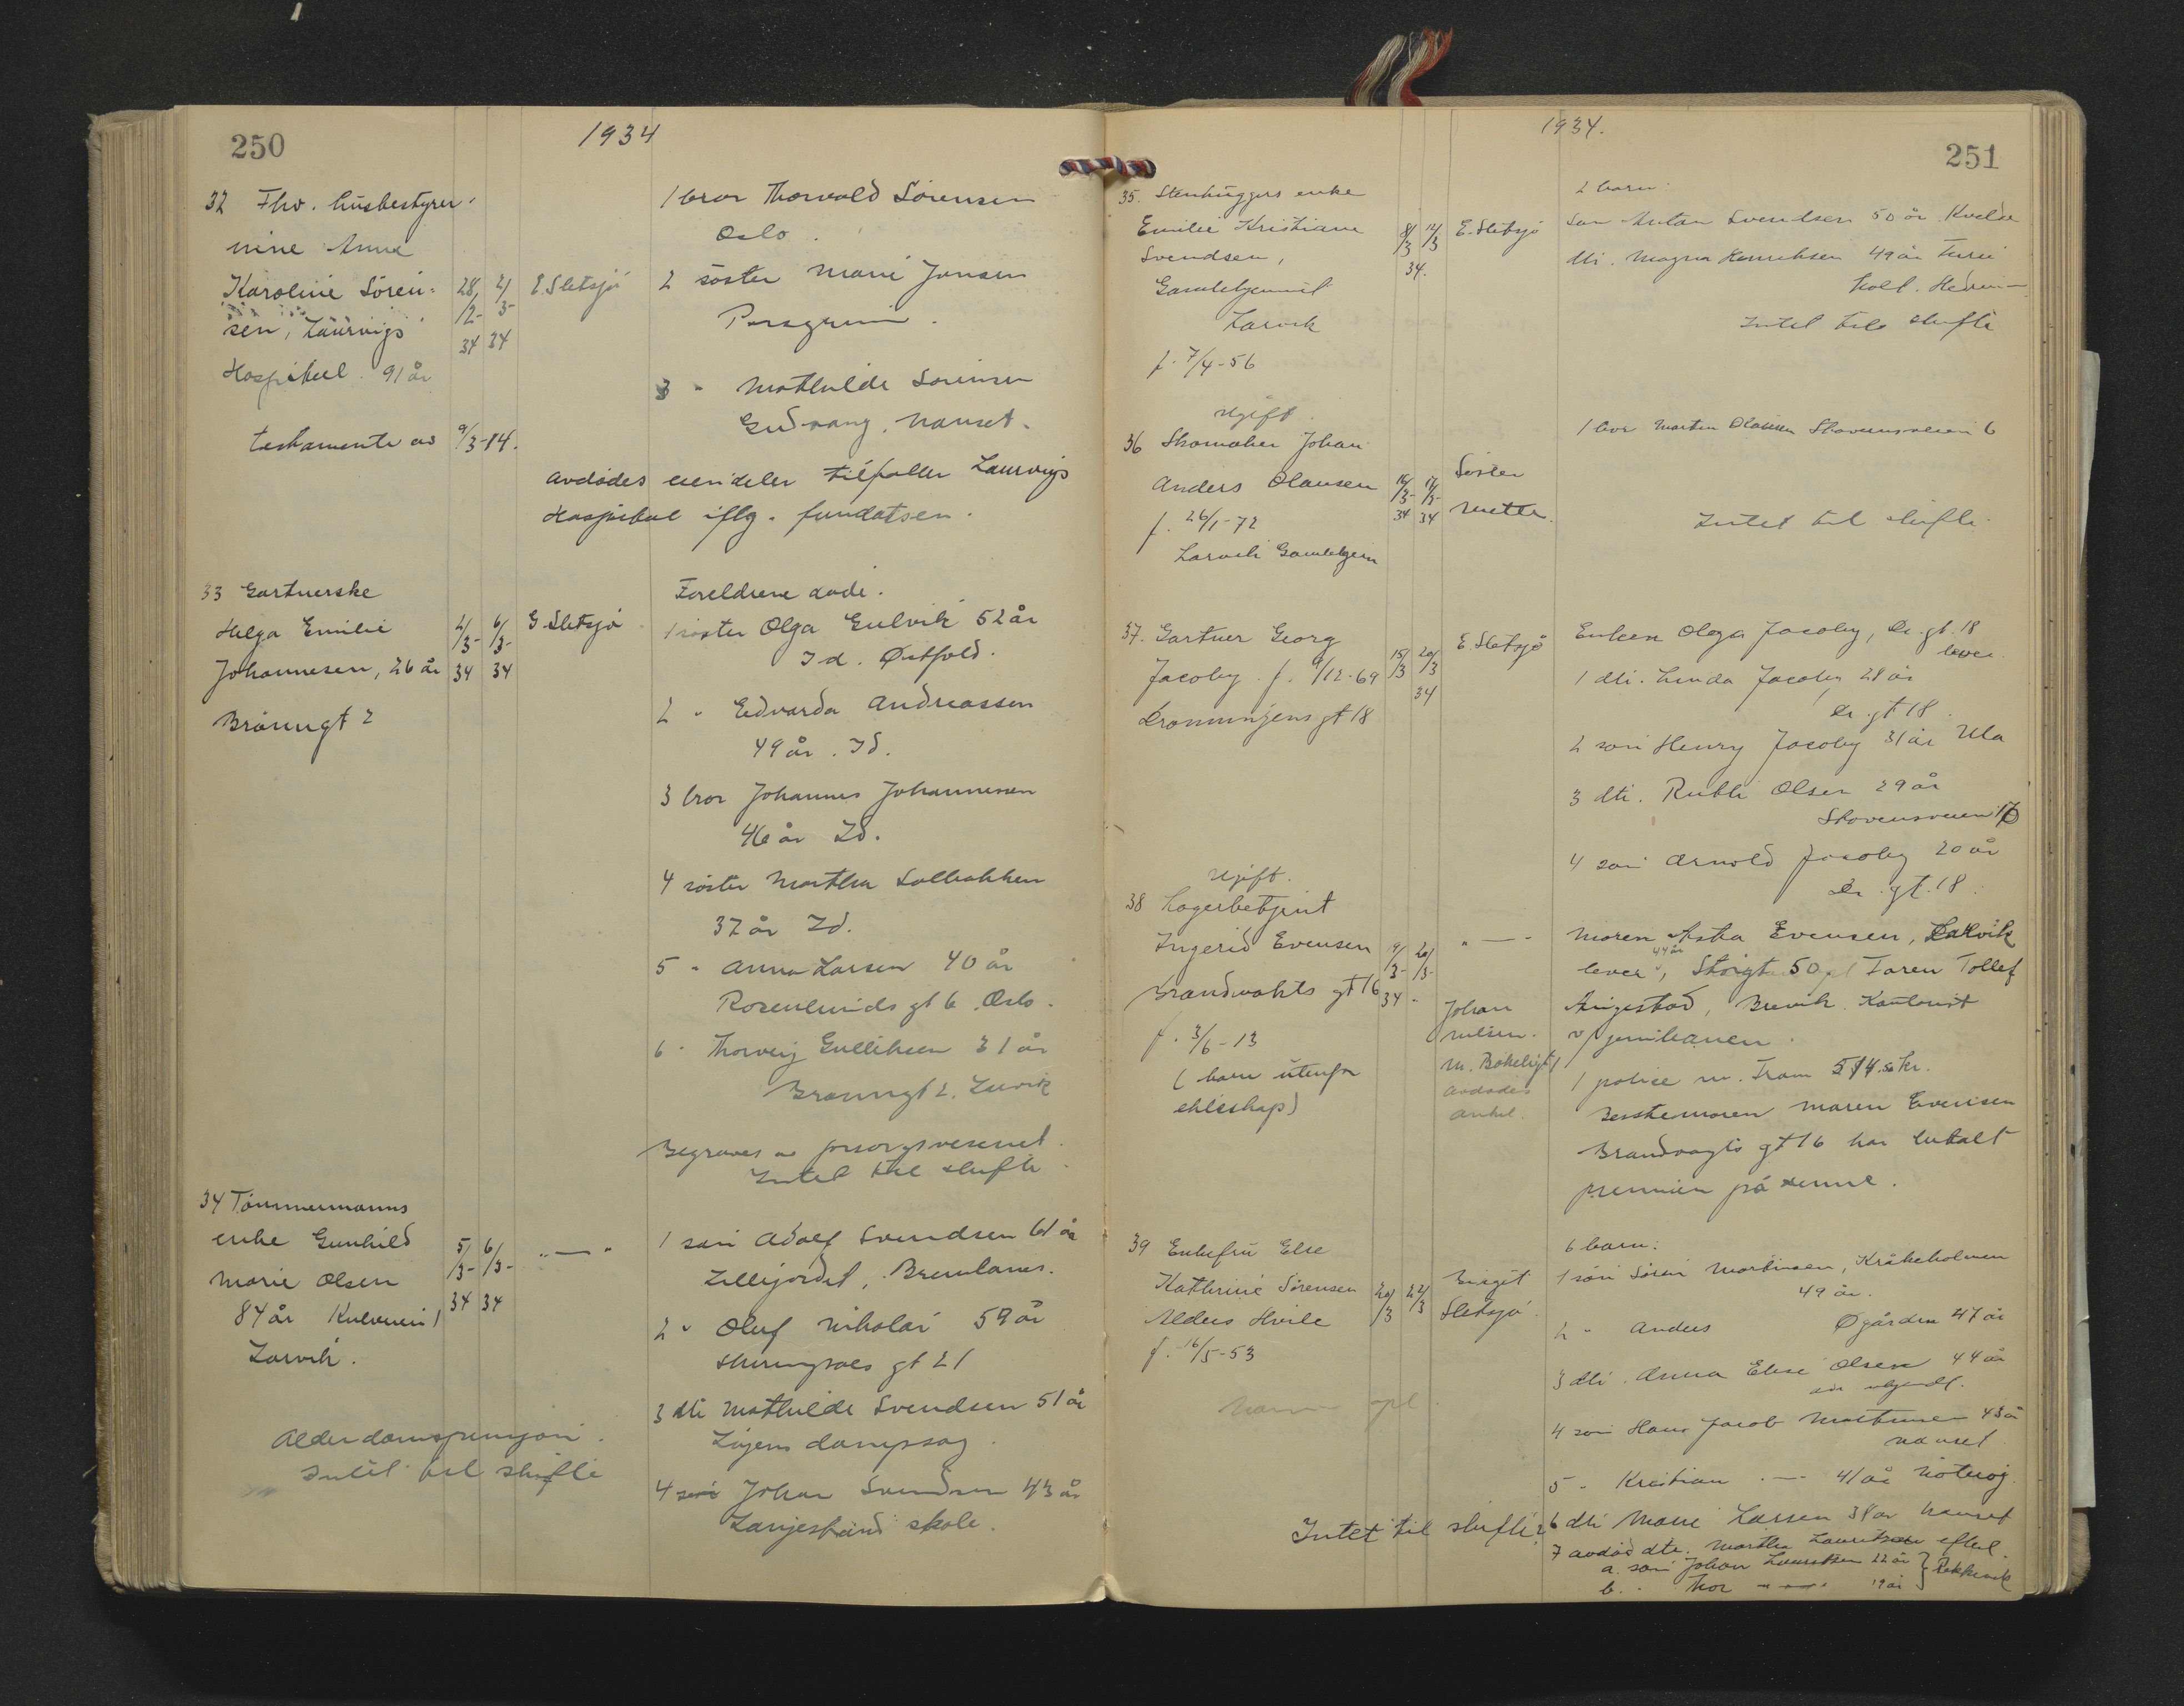 250
1934
32 Fhv. husbestyrer-
inne Anna
Karoline Sören-
sen, Laurvigs
Hospital. 91 år
28/2-34
2/3-34
E. Sletsjö
testamente av 9/3-14.
1 bror Thorvald Sörensen
Oslo.
2 söster Marie Jansen
Porsgrunn.
3 " Mathilde Sörensen
Gudvang, Nanset.
Avdødes eiendeler tilfaller Laurvigs
Hospital iflg. fundatsen.
33 Gartnerske
Helga Emilie
Johannesen, 26 år
Brånngt 2
2/3-34
6/3-34
G. Sletsjö
Foreldrene døde.
1 søster Olga Gulvik 52 år
Id. Østfold.
2 " Edvarda Andreassen
49 år. Id.
3 bror Johannes Johannesen
46 år Id.
4 søster Martha Solbakken
37 år Id.
5 " Anna Larsen 40 år
Rosenlunds gt 6 Oslo.
6 " Thorveig Gulliksen 31 år
Brånngt 2. Larvik
Begraves av forsorgsvesenet.
Intet til skifte.
34 Tömmermanns
enke Gunhild
Marie Olsen
84 år Kulveien 1
Larvik.
5/3-34
6/3-34
" — "
Alderdomspensjon.
Intet til skifte
1 sön Adolf Svendsen 61 år
Lillejordet, Brunlanes.
2 " Oluf Nikolai 59 år
Skiringsals gt 21
3 dtr Mathilde Svendsen 51 år
Lågens dampsag.
4 sön Johan Svendsen 43 år
Langestrand skole.
1934.
251
35. Stenhuggers enke
Emilie Kristiane
Svendsen,
Gamlehjemmet
Larvik
f. 7/4-56
8/3
12/3
34.
E. Sletsjö
2 barn:
Sön Anton Svendsen 50 år Kvelde
dtr. Magna Henriksen 49 år
Intet til skifte
Ugift.
36 Skomaker Johan
Anders Olausen
f. 26/1-72
Larvik Gamlehjem
16/3-34
17/3-34
Söster
Mette.
1 bror Martin Olausen Stavernsveien 6
Intet til skifte.
37. Gartner Georg
Jacoby. f. 9/12-69
Dronningens gt 18
15/3
20/3
34
E. Sletsjö
Enken Olga Jacoby, Dr. gt. 18
lever
1 dtr. Linda Jacoby 28 år
Dr. gt. 18.
2 sön Henry Jacoby 31 år Ula
3 dtr. Ruth Olsen 29 år
Stavernsveien
4 sön Arnold Jacoby 20 år
Dr. gt. 18.
Ugift.
38 Lagerbetjent
Ingerid Evensen
Brandvakts gt 16
f. 3/6-13
(barn utenfor
ekteskap)
19/3-34
20/3-
" — "
Johan
Nilsen.
M. Bøkeligt 1
avdødes
onkel.
Moren Asta Evensen, Larvik
lever 44 år, Storgt 50. Faren Tollef
Ringestad, Brevik. Kontorist
v/ jernbanen.
1 police m. Fram 514.50 kr.
Bestemoren Maren Evensen
Brandvagts gt 16 har betalt
premien på denne.
39 Enkefru Else
Kathrine Sörensen
Alders Hvile
f. 16/5-53
20/3
22/3
Birgit
Sletsjö.
6 barn:
1 sön Sören Martinsen, Kråkeholmen
49 år.
2 " Anders Øgården 47 år
3 dtr. Anna Elise Olsen 44 år
4 sön Hans Jacob Martinsen 43 år
Nanset
5 " Kristian " — 41 år Nötteröy.
6 dtr Marie Larsen 38 år Nanset
7 avdød dtr. Martha Lauritsen efterl.
a. sön Johan Lauritsen 22 år } Rekkevik
b. " Thor " — " 19 år
Intet til skifte?